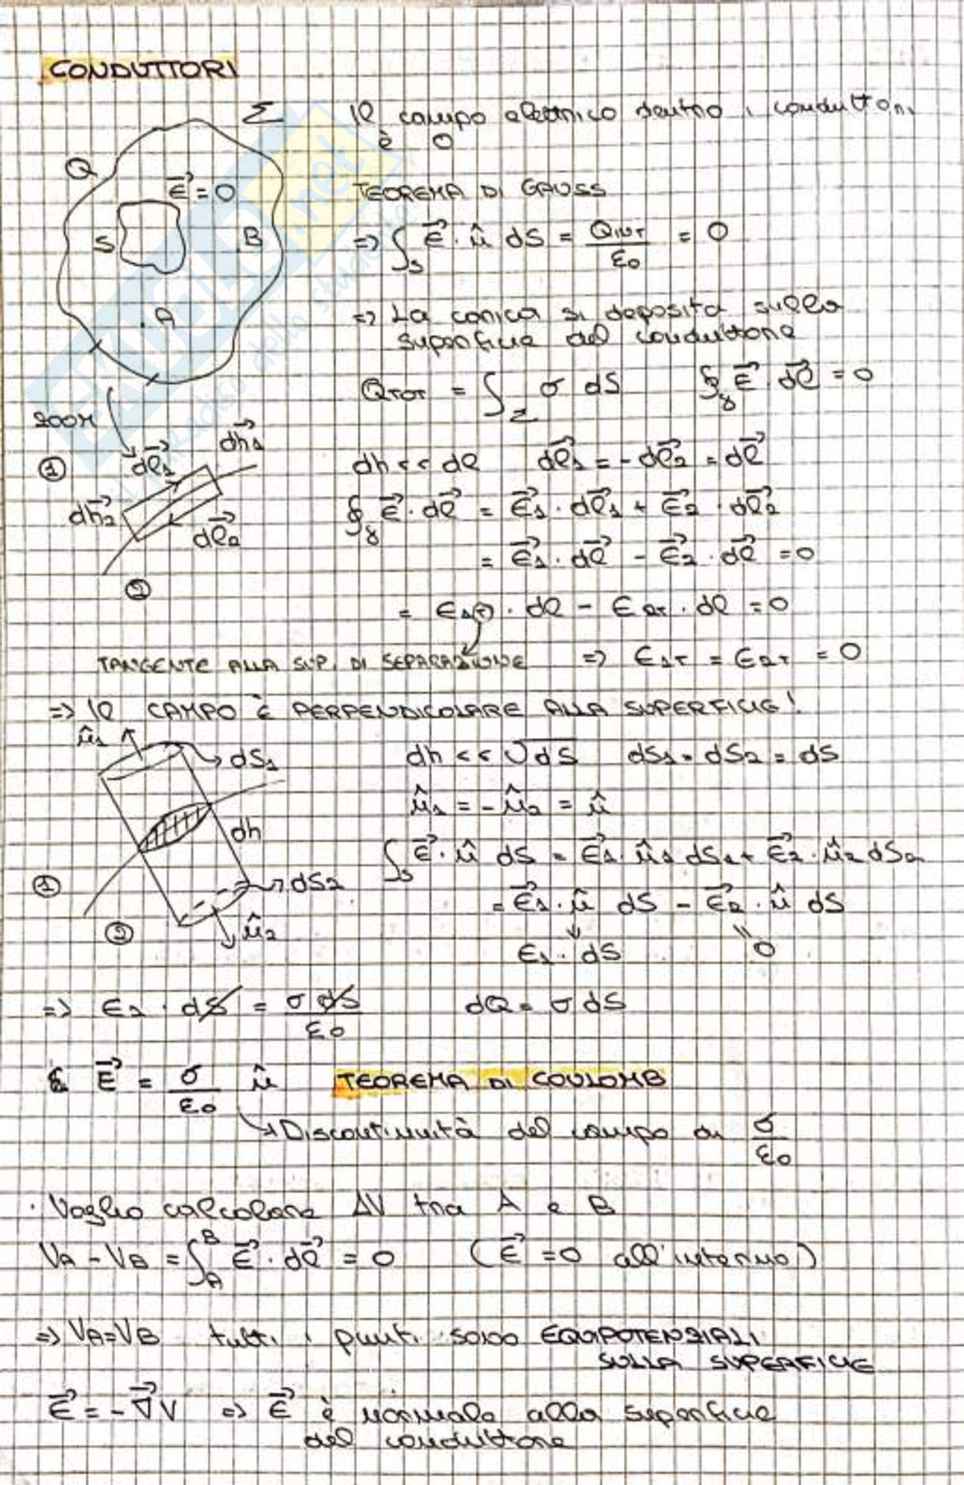 CONDUTTORI
Σ
Il campo elettrico dentro i conduttori
è 0
Q
E⃗ = 0
S
B
A
TEOREMA DI GAUSS
=> ∫_S E⃗ · û dS = Q_INT / ε0 = 0
=> La carica si deposita sulla
superficie del conduttore
Q_TOT = ∫_Σ σ dS    ∮_γ E⃗ · dl⃗ = 0
ZOOM
① dl⃗1 dh⃗1
dh⃗2 dl⃗2
②
dh << dl    dl⃗1 = -dl⃗2 = dl⃗
∮_γ E⃗ · dl⃗ = E⃗1 · dl⃗1 + E⃗2 · dl⃗2
= E⃗1 · dl⃗ - E⃗2 · dl⃗ = 0
= E1T · dl - E2T · dl = 0
TANGENTE ALLA SUP. DI SEPARAZIONE    => E1T = E2T = 0
=> IL CAMPO È PERPENDICOLARE ALLA SUPERFICIE!
û1 dS1
dh
① dS2
② û2
dh << √dS    dS1 = dS2 = dS
û1 = -û2 = û
∫_S E⃗ · û dS = E⃗1 · û1 dS1 + E⃗2 · û2 dS2
= E⃗1 · û dS - E⃗2 · û dS
E1 · dS    " 0
=> E1 · dS = σ dS / ε0    dQ = σ dS
E⃗ = σ / ε0 û    TEOREMA DI COULOMB
Discontinuità del campo di σ / ε0
· Voglio calcolare ΔV tra A e B
VA - VB = ∫_A^B E⃗ · dl⃗ = 0    (E⃗ = 0 all'interno)
=> VA=VB tutti i punti sono EQUIPOTENZIALI
SULLA SUPERFICIE
E⃗ = -∇⃗V => E⃗ è normale alla superficie
del conduttore